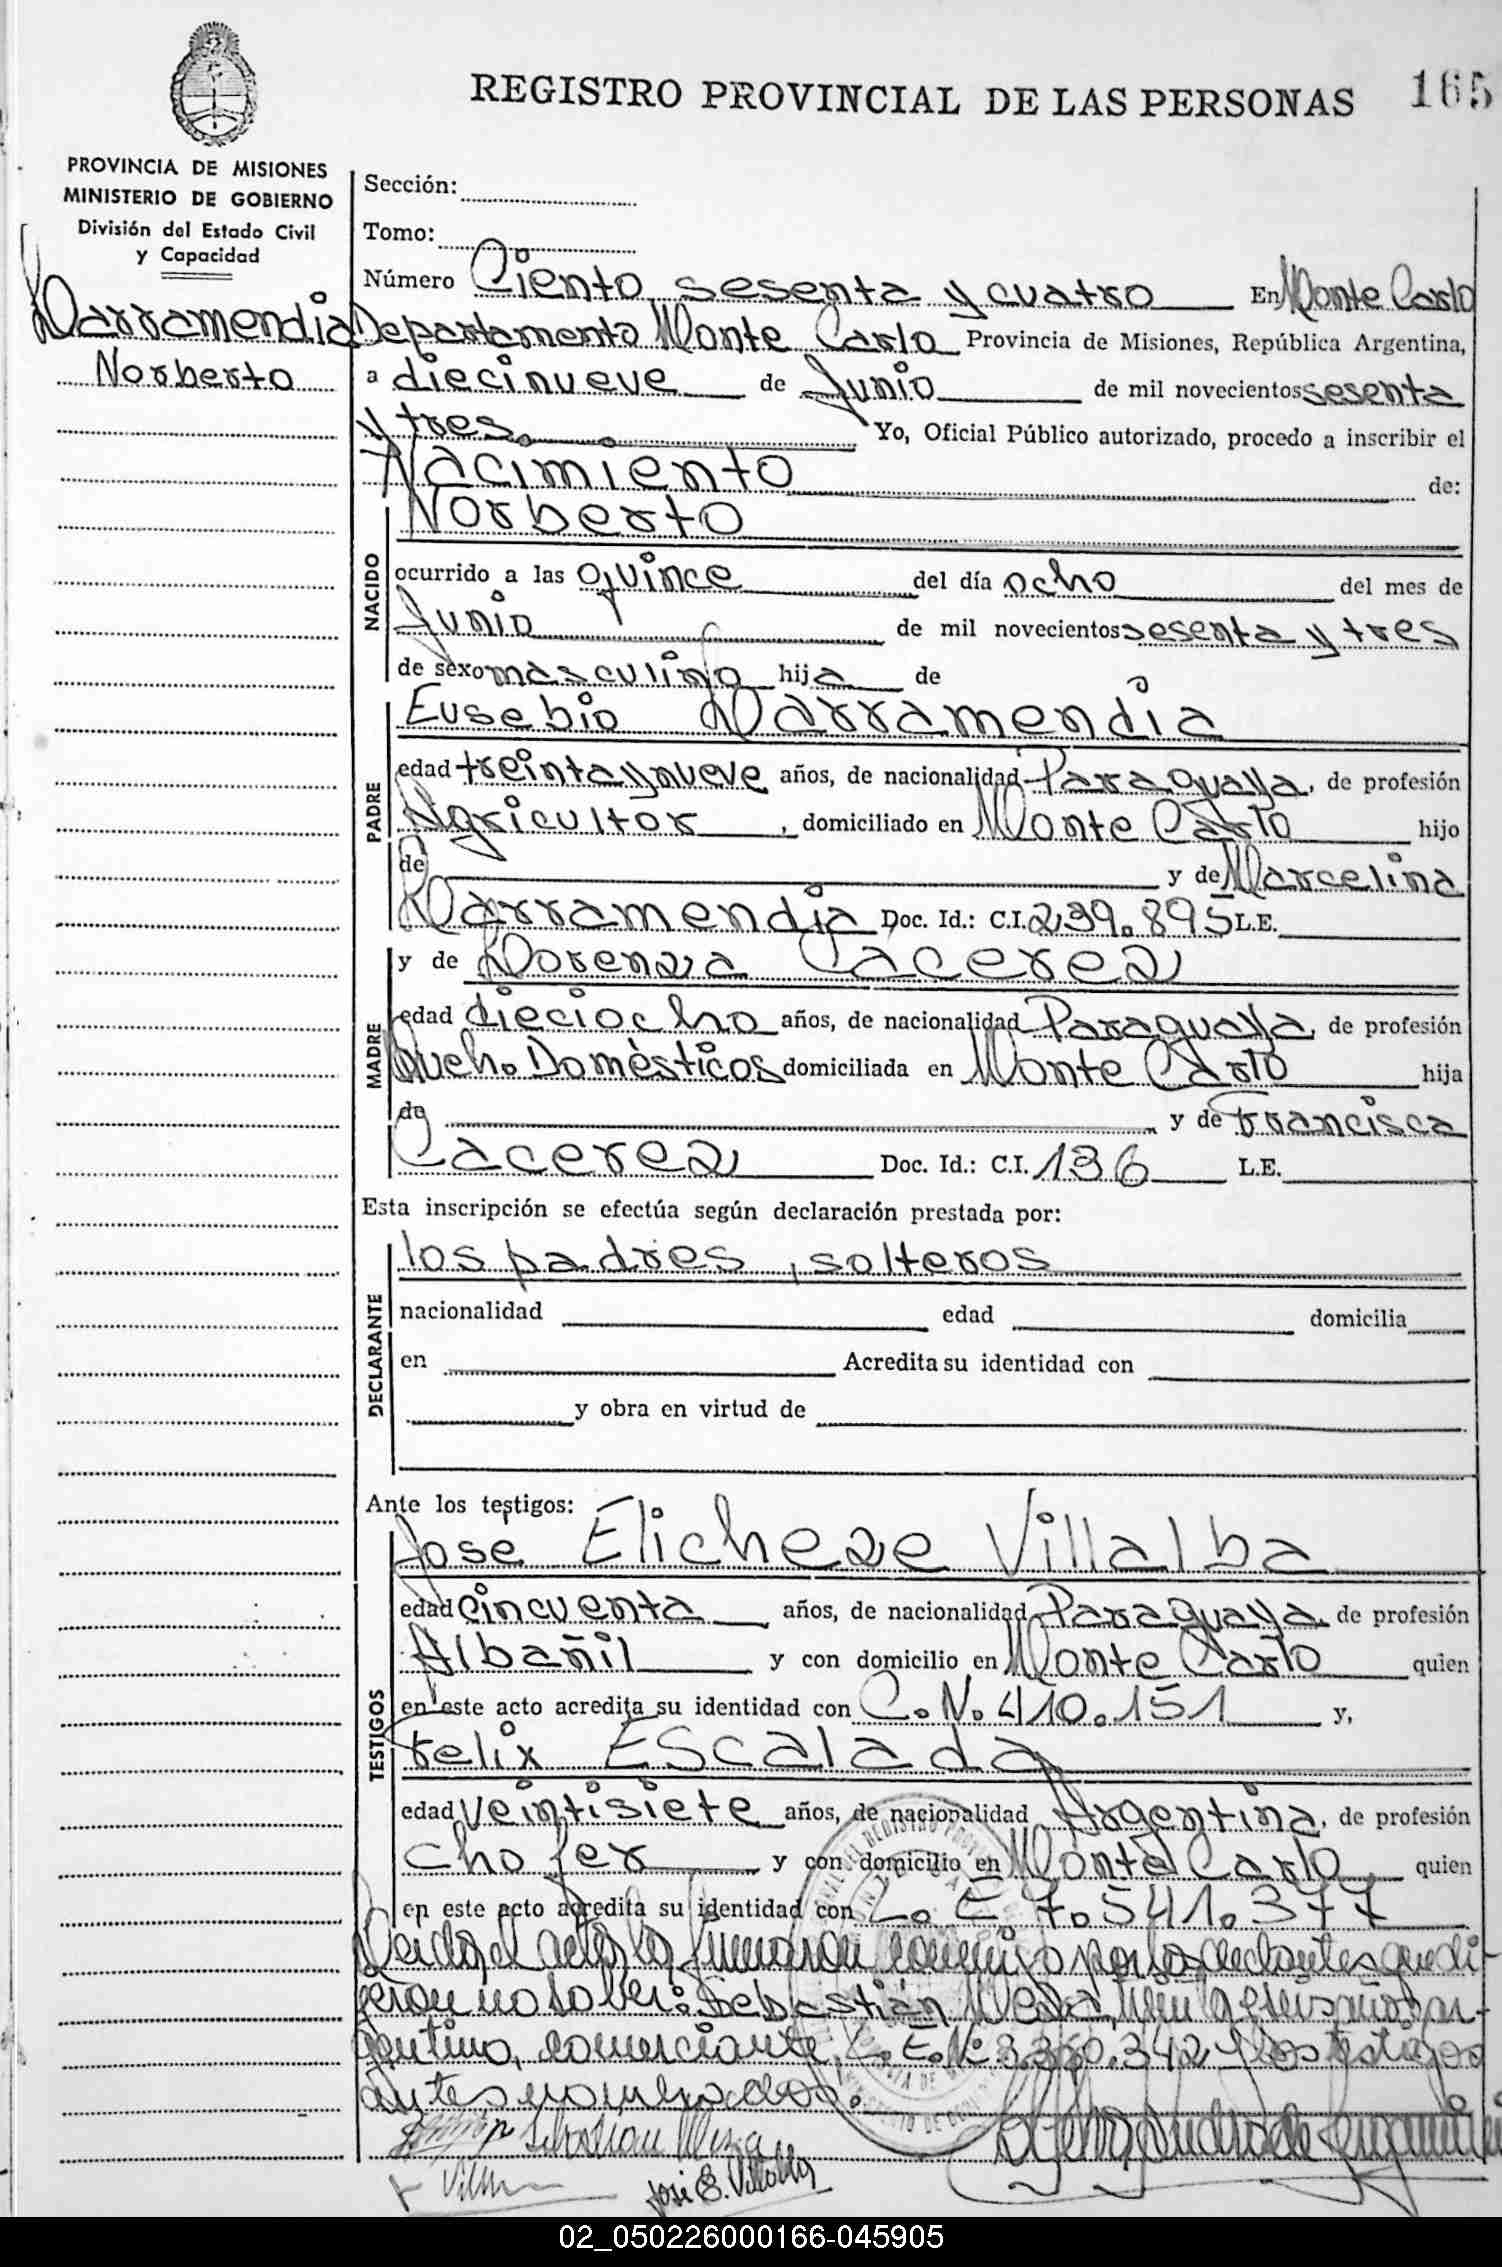 REGISTRO PROVINCIAL DE LAS PERSONAS 165
PROVINCIA DE MISIONES
MINISTERIO DE GOBIERNO
División del Estado Civil
y Capacidad
Larramendia
Norberto
Sección:
Tomo:
Número Ciento sesenta y cuatro En Monte Carlo
Departamento Monte Carlo Provincia de Misiones, República Argentina,
a diecinueve de Junio de mil novecientos sesenta
y tres. Yo, Oficial Público autorizado, procedo a inscribir el
Nacimiento de:
Norberto
NACIDO
ocurrido a las quince del día ocho del mes de
Junio de mil novecientos sesenta y tres
de sexo masculino hija de
Eusebio Larramendia
PADRE
edad treinta y nueve años, de nacionalidad Paraguaya, de profesión
Agricultor, domiciliado en Monte Carlo hijo
de y de Marcelina
Larramendia Doc. Id.: C.I. 239.895 L.E.
y de Lorenza Cacerez
MADRE
edad dieciocho años, de nacionalidad Paraguaya, de profesión
Queh. Domésticos domiciliada en Monte Carlo hija
de y de Francisca
Cacerez Doc. Id.: C.I. 136 L.E.
Esta inscripción se efectúa según declaración prestada por:
los padres, solteros
DECLARANTE
nacionalidad edad domicilia
en Acredita su identidad con
y obra en virtud de
Ante los testigos:
José Elicheze Villalba
TESTIGOS
edad cincuenta años, de nacionalidad Paraguaya de profesión
Albañil y con domicilio en Monte Carlo quien
en este acto acredita su identidad con C. N. 410.151 y,
Felix Escalada
edad veintisiete años, de nacionalidad Argentina, de profesión
chofer y con domicilio en Monte Carlo quien
en este acto acredita su identidad con L. E. 7.541.377
Leida el acta la firmaron conmigo por los declantes que di-
jeron no saber: Sebastián Mesa, ar-
gentino, comerciante, L. E. Nº 3.360.342 y los testigos
antes nombrados.
Sebastian Mesa
José E. Villalba
02_050226000166-045905